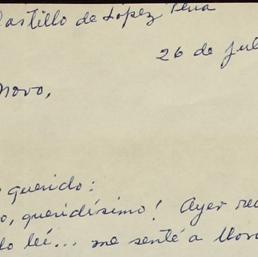 Castillo de López Peña
26 de jul
novo,
querido:
o, queridísimo! Ayer rec
lo leí... me senté a llora